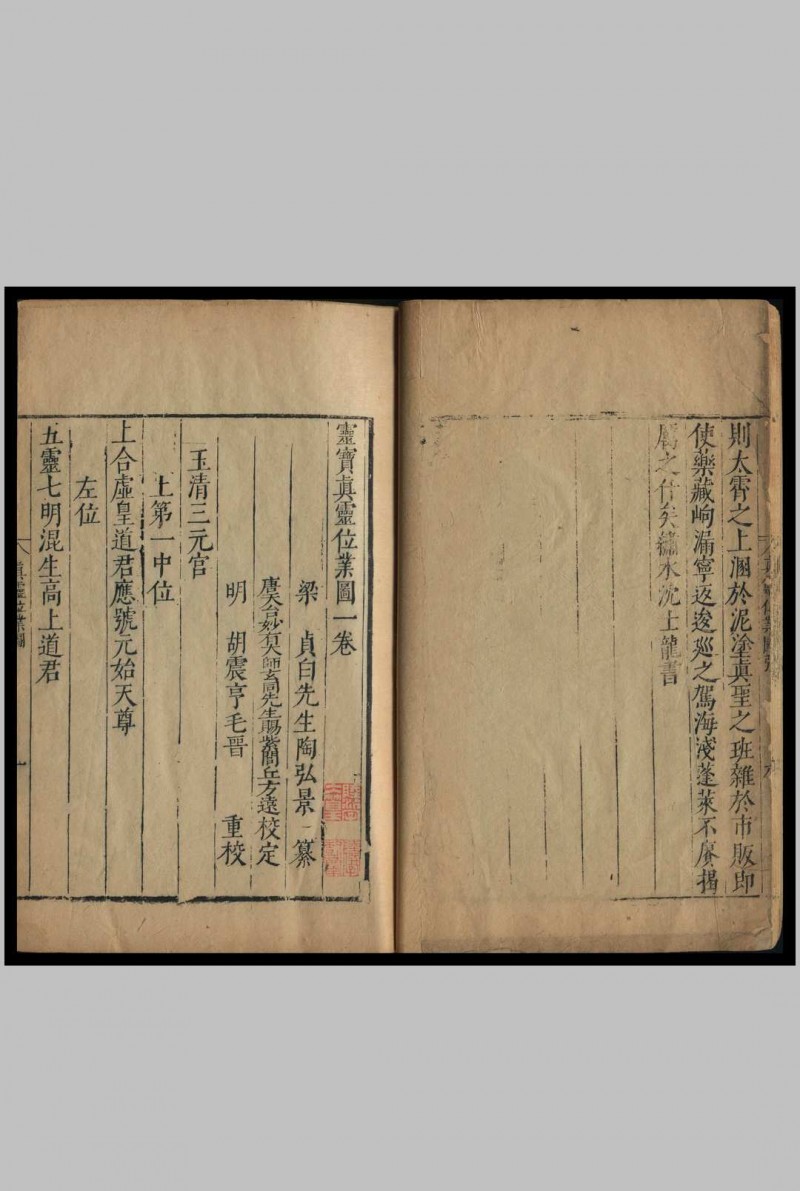 則太霄之上溷於泥塗真聖之班雜於市販即
使藥藏岣漏寧返逡巡之駕海淺蓬萊不賡揭
厲之什矣繡水沈士龍書
靈寶真靈位業圖一卷
梁　貞白先生陶弘景　纂
唐天台妙有大師玄同先生賜紫閭丘方遠校定
明　胡震亨毛晉　重校
玉清三元宮
上第一中位
上合虛皇道君應號元始天尊
左位
五靈七明混生高上道君
真靈位業圖
一